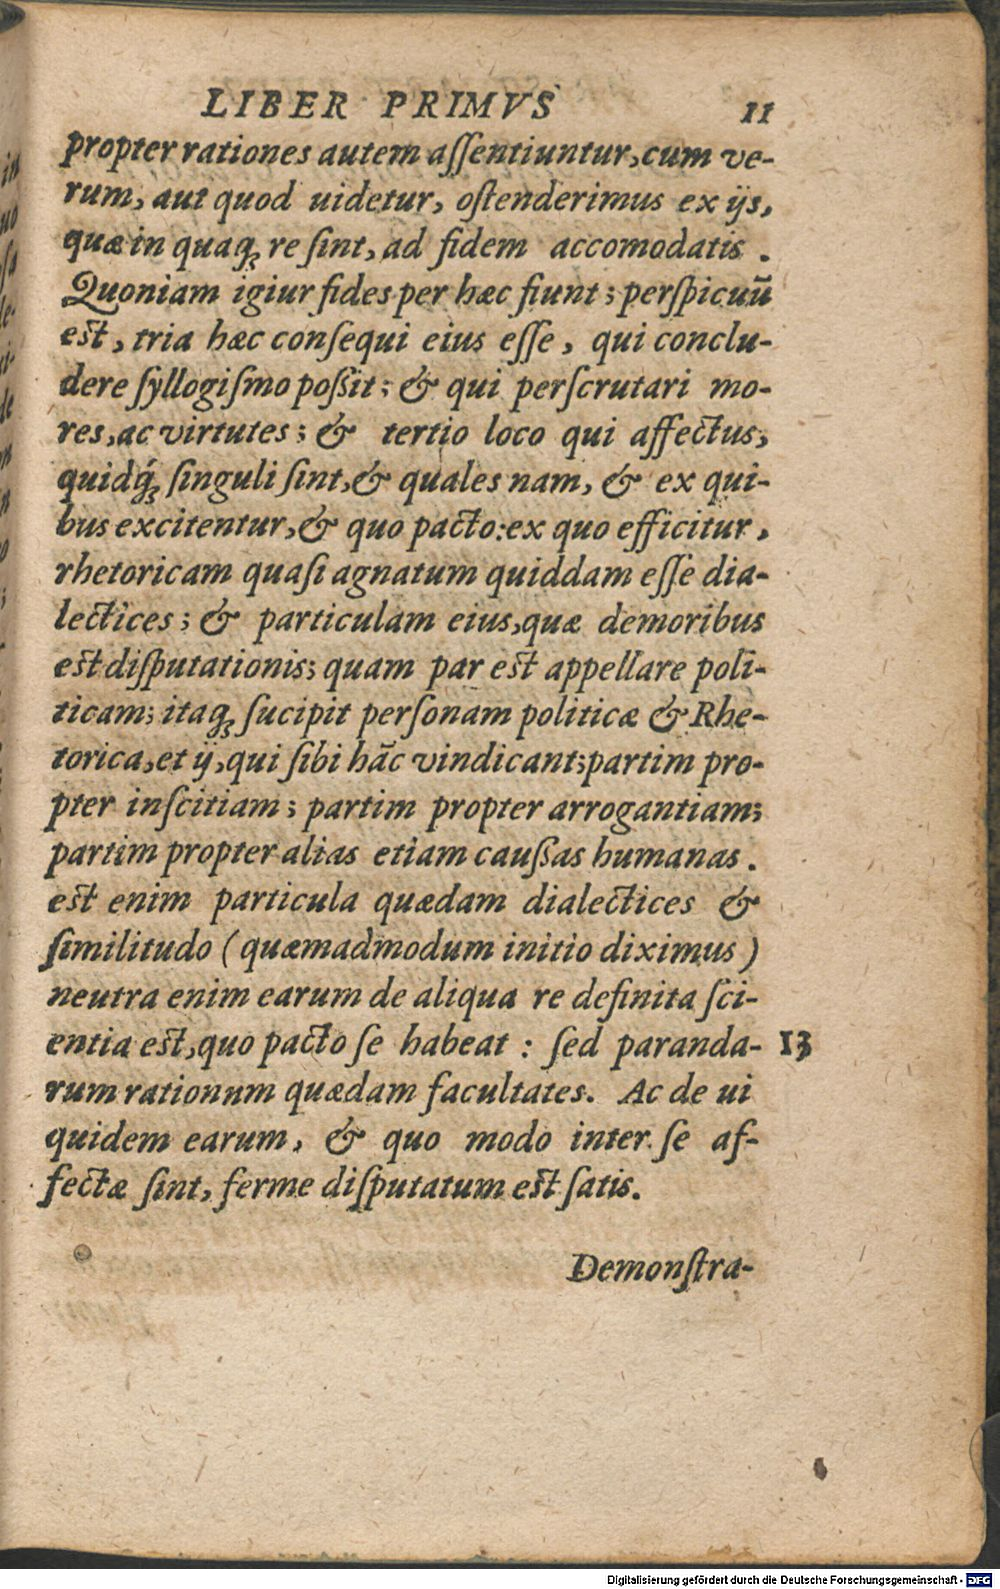 LIBER PRIMVS 11
propter rationes autem aſſentiuntur, cum ve-
rum, aut quod uidetur, oſtenderimus ex ijs,
quæ in quaqꝫ re ſint, ad fidem accomodatis .
Quoniam igiur fides per hæc fiunt ; perſpicuū
est, tria hæc conſequi eius eſſe, qui conclu-
dere ſyllogiſmo poſsit ; & qui perſcrutari mo-
res, ac virtutes ; & tertio loco qui affectus,
quidqꝫ́ ſinguli ſint, & quales nam, & ex qui-
bus excitentur, & quo pacto: ex quo efficitur,
rhetoricam quaſi agnatum quiddam eſſe dia-
lectices ; & particulam eius, quæ demoribus
est diſputationis; quam par est appellare poli-
ticam; itaqꝫ ſucipit perſonam politicæ & Rhe-
torica, et ij, qui ſibi hāc vindicant; partim pro-
pter inſcitiam ; partim propter arrogantiam;
partim propter alias etiam cauſsas humanas .
est enim particula quædam dialectices &
ſimilitudo ( quæmadmodum initio diximus )
neutra enim earum de aliqua re definita ſci-
entia est, quo pacto ſe habeat : ſed paranda- 13
rum rationnm quædam facultates. Ac de ui
quidem earum, & quo modo inter ſe af-
fectæ ſint, ferme diſputatum est ſatis.
Demonſtra-
Digitalisierung gefördert durch die Deutsche Forschungsgemeinschaft - DFG